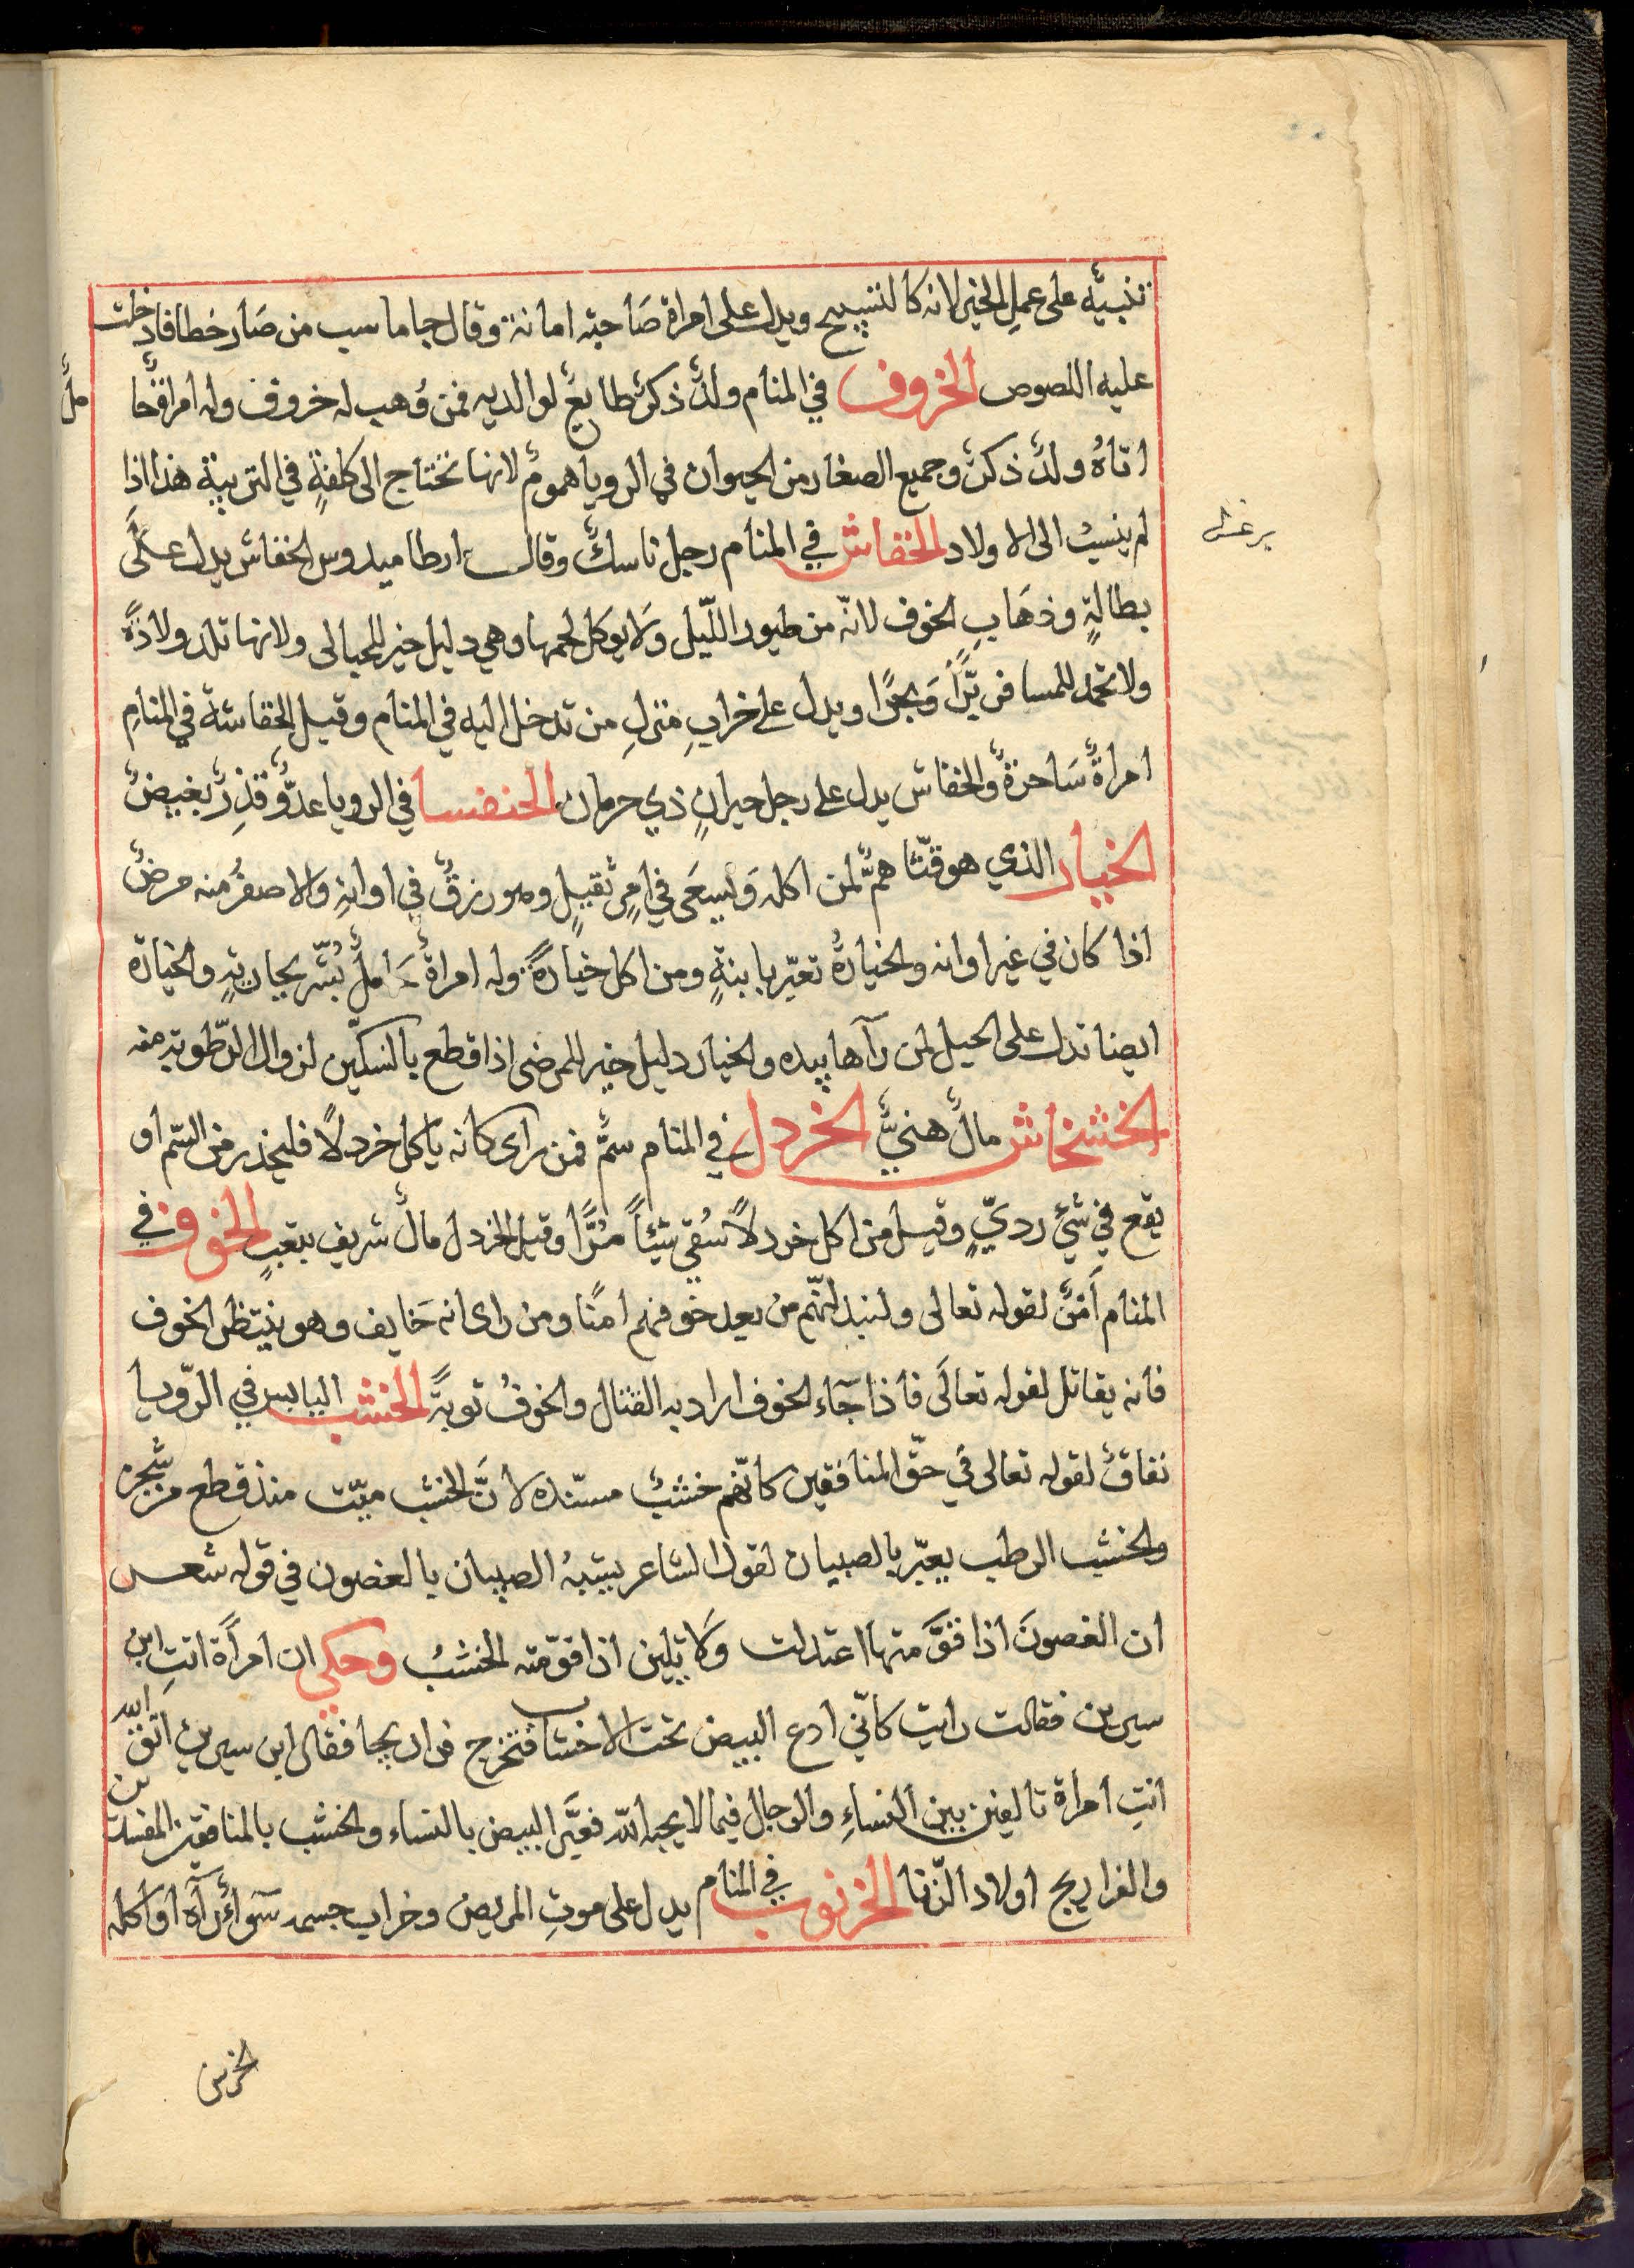 تنبيهٌ على عملِ الخير لانه كالتسبيح ويدل على امراة صَاحبة امانة وقال جاماسب من صَار خطافا دخلت
عليه اللصوص الخروف في المنام ولدٌ ذكرٌ طايعٌ لوالديه فمن وُهب له خروف وله امراةٌ حا
ملٌ
اتاهُ ولدٌ ذكرٌ وجميع الصغار من الحيوان في الرويا همومٌ لانها تحتاج الى كلفةٍ في التربية هذا اذا
لم ينسبْ الى الاولاد الخفاش في المنام رجل ناسكٌ وقال ارطاميدوس الخفاش يدل على
بطالةٍ وذهَابِ الخوف لانّه من طيور اللّيل وَلا يوكل لحمها وهي دليل خير للحبالى ولانها تلد ولادةً
ولا تحمد للمسافر برًّا وَبحرًا ويدل على خرابِ منزلِ من تدخل اليه في المنام وقيل الخفاشة في المنامِ
امراةٌ سَاحرةٌ والخفاش يدل على رجل حيرانٍ ذي حرمان الخنفسا في الرويا عدوٌّ قذِرٌ بغيضٌ
الخيار الذي هو قثّا همٌّ لمن اكله وَيسعَى في امرٍ ثقيلٍ وهو رزقٌ في اوانهِ والاصفرُ منه مرضٌ
اذا كان في غير اوانه والخيارةُ تعبّر بابنةٍ ومن اكل خيارةً وله امراةٌ حَاملٌ بُشّر بجاريةٍ والخيارة
ايضا تدل على الحيل لمن رآها بيده والخيار دليل خير للمرضى اذا قطع بالسكّين لزوال الرّطوبة منه
الخشخاش مالٌ هنيٌّ الخردل في المنام سمٌّ فمن راى كانه ياكل خردلًا فليحذر من السّم او
يقع في شئ رديٍّ وقيل من اكل خردلًا سُقي شيئاً مُرًّا وقيل الخردل مالٌ شريف بتعبٍ الخوف في
المنام اَمنٌ لقوله تعالى وليبدلنّهم من بعد خوفهم امنًا ومن راى انه خَايف وهو ينتظر الخوف
فانه يقاتل لقوله تعالَى فاذا جآء الخوف اراد به القتال والخوفُ توبةٌ الخشب اليابس في الرّويا
نفاقٌ لقوله تعالى في حقّ المنافقين كانّهم خشبٌ مسنّده لانَّ الخشب ميّت منذ قطع من شجره
والخشب الرطب يعبّر بالصبيان لقول الشاعر يشبهُ الصبيان بالغصون في قوله شعر
ان الغصونَ اذا قوَّمتها اعتدلت وَلا يلين اذا قوّمته الخشبُ وحكي ان امراَة اتتِ ابن
سيرين فقالت رايت كانّي ادع البيض تحت الاخشاب فتخرج فراريجا فقال ابن سيرين اتّقِ الله
انتِ امراة تالفين بين النساءِ والرجال فيما لا يحبه الله فعبَّر البيض بالنساء والخشب بالمنافقين المفسدين
والفراريج اولاد الزّنا الخرنوب في المنام يدل على موتِ المريض وخراب جسمه سَوآءٌ رآه او اكله